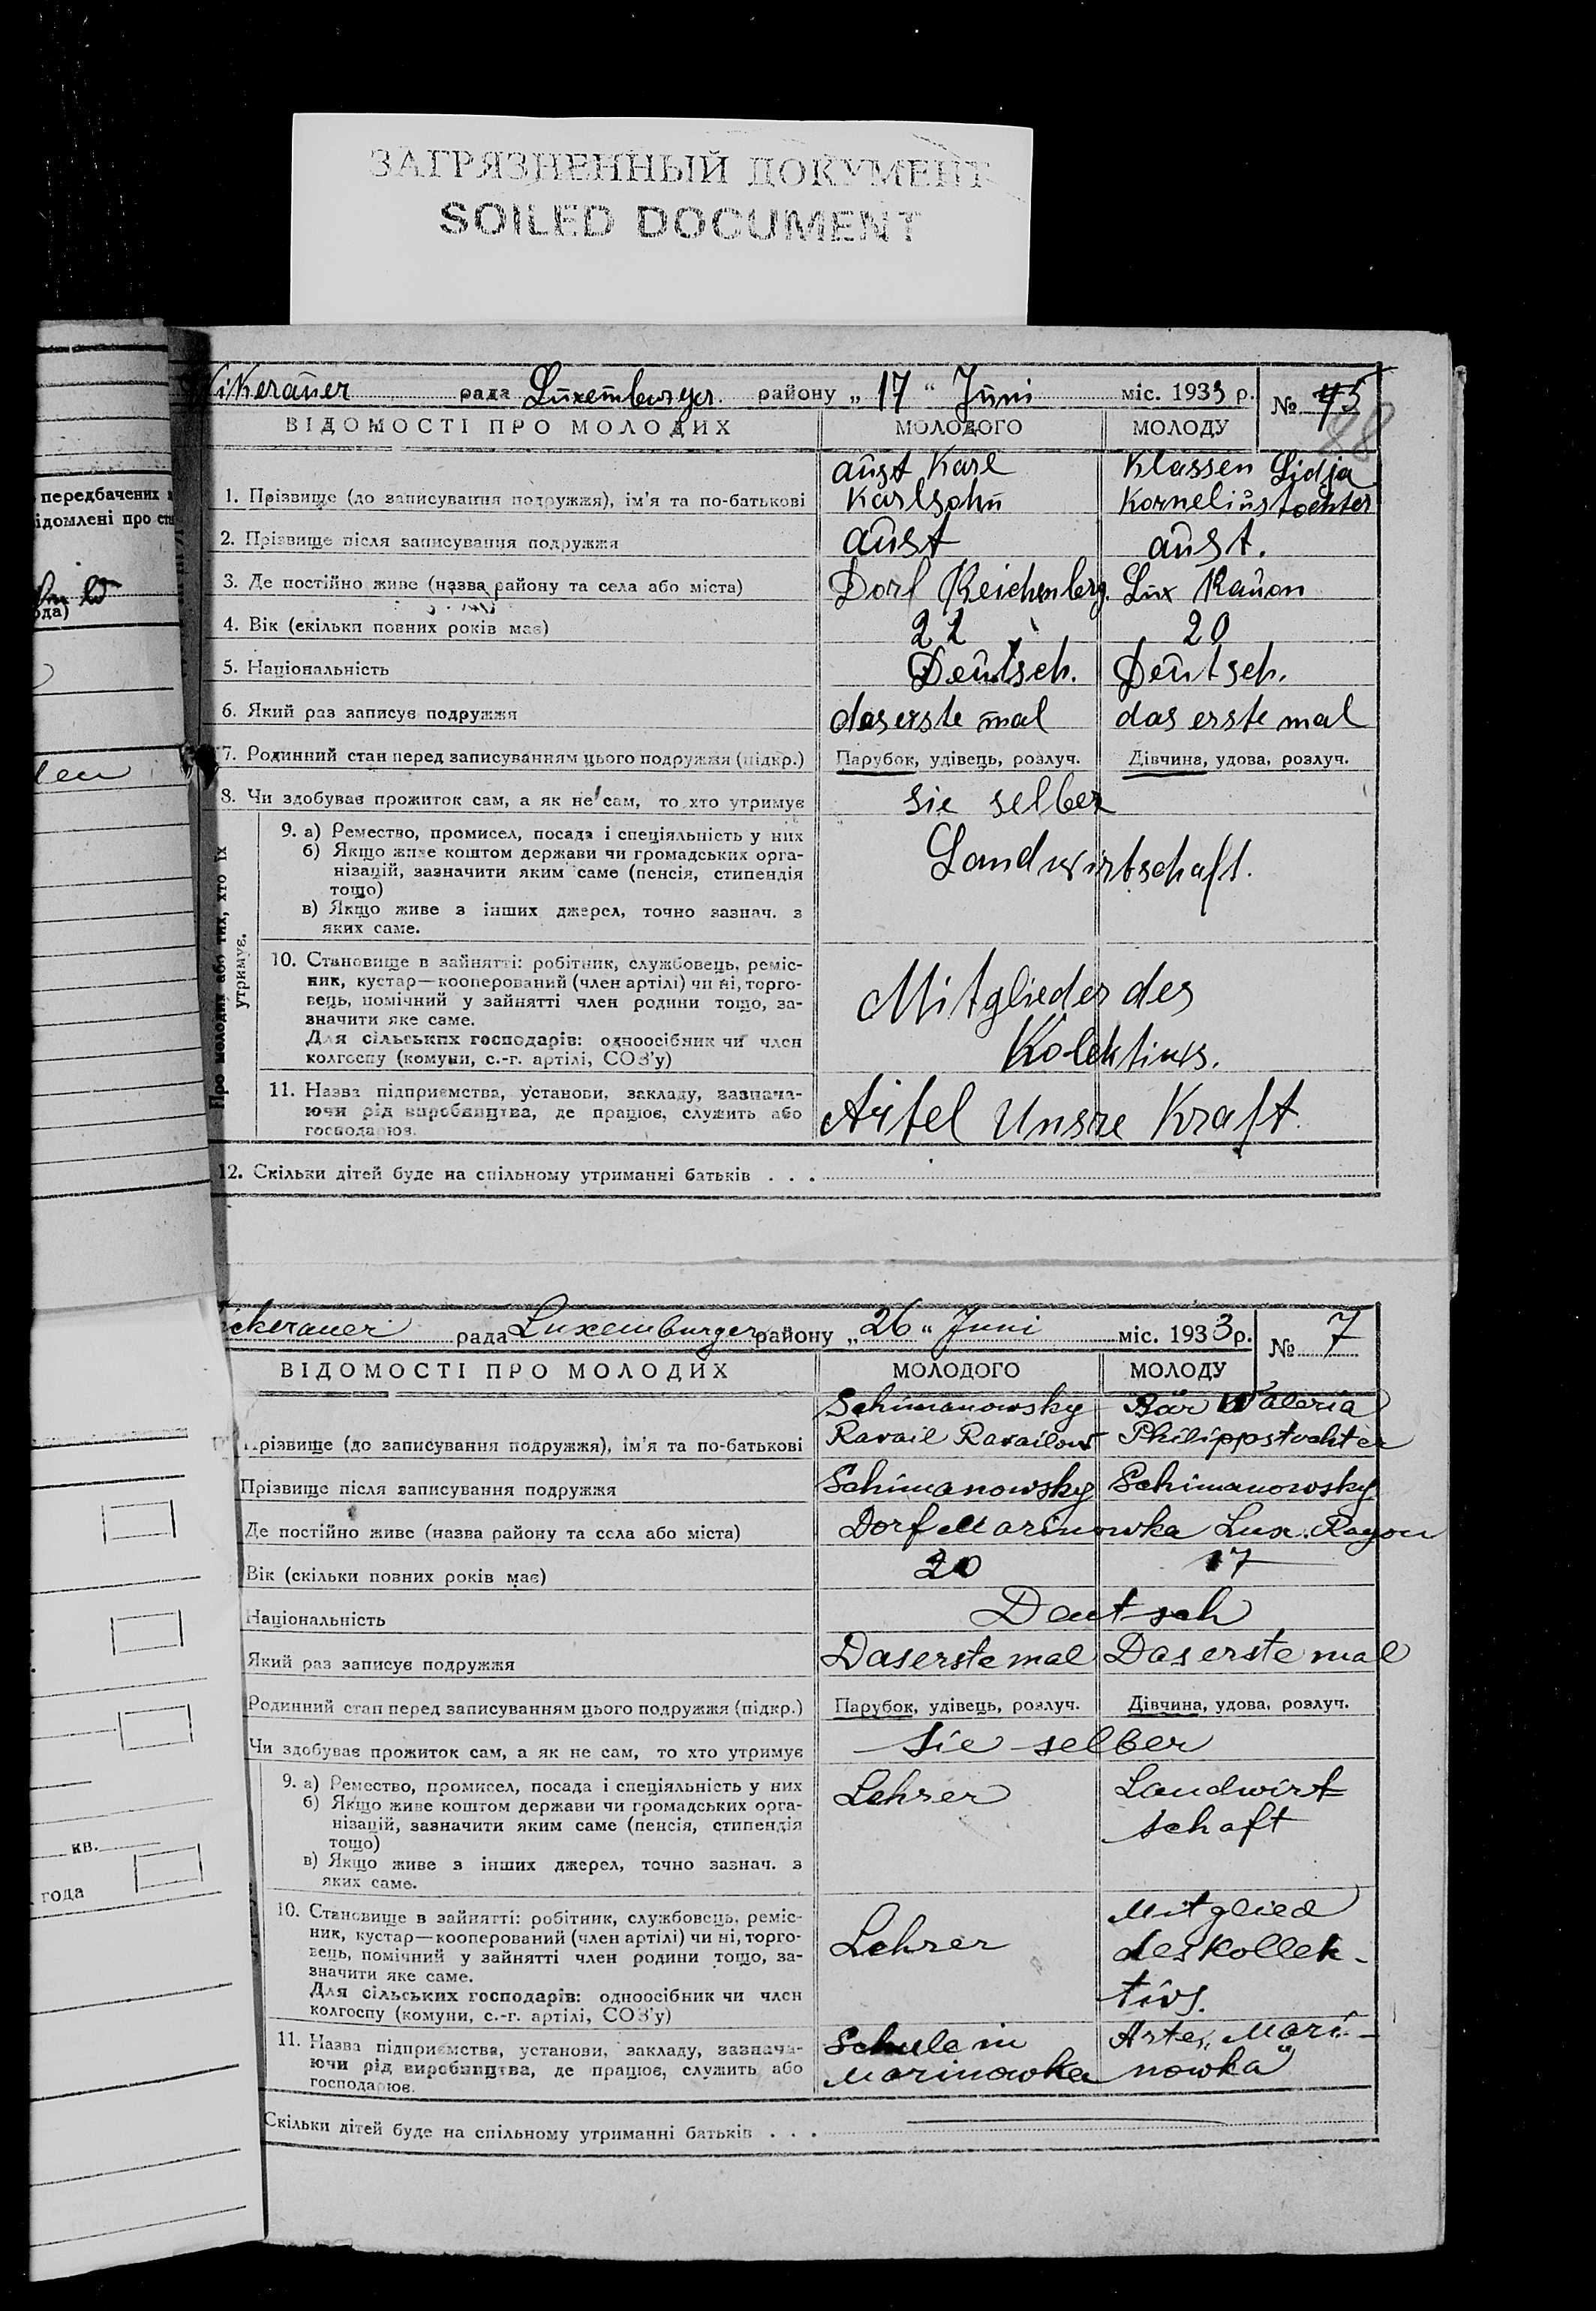 ЗАГРЯЗНЕННЫЙ ДОКУМЕНТ
SOILED DOCUMENT
передбачених
ідомлені про
ода)
len
кв.
года
ikeraŭer рада Lŭxemburger району „ 17 “ Jŭni міс. 1933 р. №
88
ВІДОМОСТІ ПРО МОЛОДИХ МОЛОДОГО МОЛОДУ
aŭst Karl Klassen Lidja
1. Прізвище (до записування подружжя), ім'я та по-батькові Karlsohn Korneliŭstochter
2. Прізвище після записування подружжя aŭst aŭst.
3. Де постійно живе (назва району та села або міста) Dorf Reichenberg. Lŭx Raŭon
4. Вік (скільки повних років має) 22 20
5. Національність Deŭtsch. Deŭtsch.
6. Який раз записує подружжя das erste mal das erste mal
7. Родинний стан перед записуванням цього подружжя (підкр.) Парубок, удівець, розлуч. Дівчина, удова, розлуч.
8. Чи здобуває прожиток сам, а як не сам, то хто утримує sie selber
Про молодих або тих, хто їх
утримує.
9. а) Ремество, промисел, посада і спеціяльність у них
б) Якщо живе коштом держави чи громадських орга-
нізацій, зазначити яким саме (пенсія, стипендія
тощо)
в) Якщо живе з інших джерел, точно зазнач. з
яких саме.
Landwirtschaft.
10. Становище в зайнятті: робітник, службовець, реміс-
ник, кустар—кооперований (член артілі) чи ні, торго-
вець, помічний у зайнятті член родини тощо, за-
значити яке саме.
Для сільських господарів: одноосібник чи член
колгоспу (комуни, с.-г. артілі, СОЗ'у)
Mitglieder des
Kolektiws.
11. Назва підприємства, установи, закладу, зазнача-
ючи рід виробництва, де працює, служить або
господарює.
Artel Unsre Kraft.
12. Скільки дітей буде на спільному утриманні батьків . . .
ckerauer рада Luxemburger району „ 26 “ Juni міс. 1933 р. № 7
ВІДОМОСТІ ПРО МОЛОДИХ МОЛОДОГО МОЛОДУ
Schimanowsky Bär Waleria
Прізвище (до записування подружжя), ім'я та по-батькові Ravail Ravailow Philippstochter
Прізвище після записування подружжя Schimanowsky Schimanowsky
Де постійно живе (назва району та села або міста) Dorf Marinowka Lux. Rayon
Вік (скільки повних років має) 20 17
Національність Deutsch
Який раз записує подружжя Das erste mal Das erste mal
Родинний стан перед записуванням цього подружжя (підкр.) Парубок, удівець, розлуч. Дівчина, удова, розлуч.
Чи здобуває прожиток сам, а як не сам, то хто утримує Sie selber
9. а) Ремество, промисел, посада і спеціяльність у них
б) Якщо живе коштом держави чи громадських орга-
нізацій, зазначити яким саме (пенсія, стипендія
тощо)
в) Якщо живе з інших джерел, точно зазнач. з
яких саме.
Lehrer Landwirt
schaft
10. Становище в зайнятті: робітник, службовець, реміс-
ник, кустар—кооперований (член артілі) чи ні, торго-
вець, помічний у зайнятті член родини тощо, за-
значити яке саме.
Для сільських господарів: одноосібник чи член
колгоспу (комуни, с.-г. артілі, СОЗ'у)
Lehrer Mitglied
des Kollek-
tivs.
11. Назва підприємства, установи, закладу, зазнача-
ючи рід виробництва, де працює, служить або
господарює.
Schule in Artel „Mari-
Marinowka nowka“
Скільки дітей буде на спільному утриманні батьків . . .